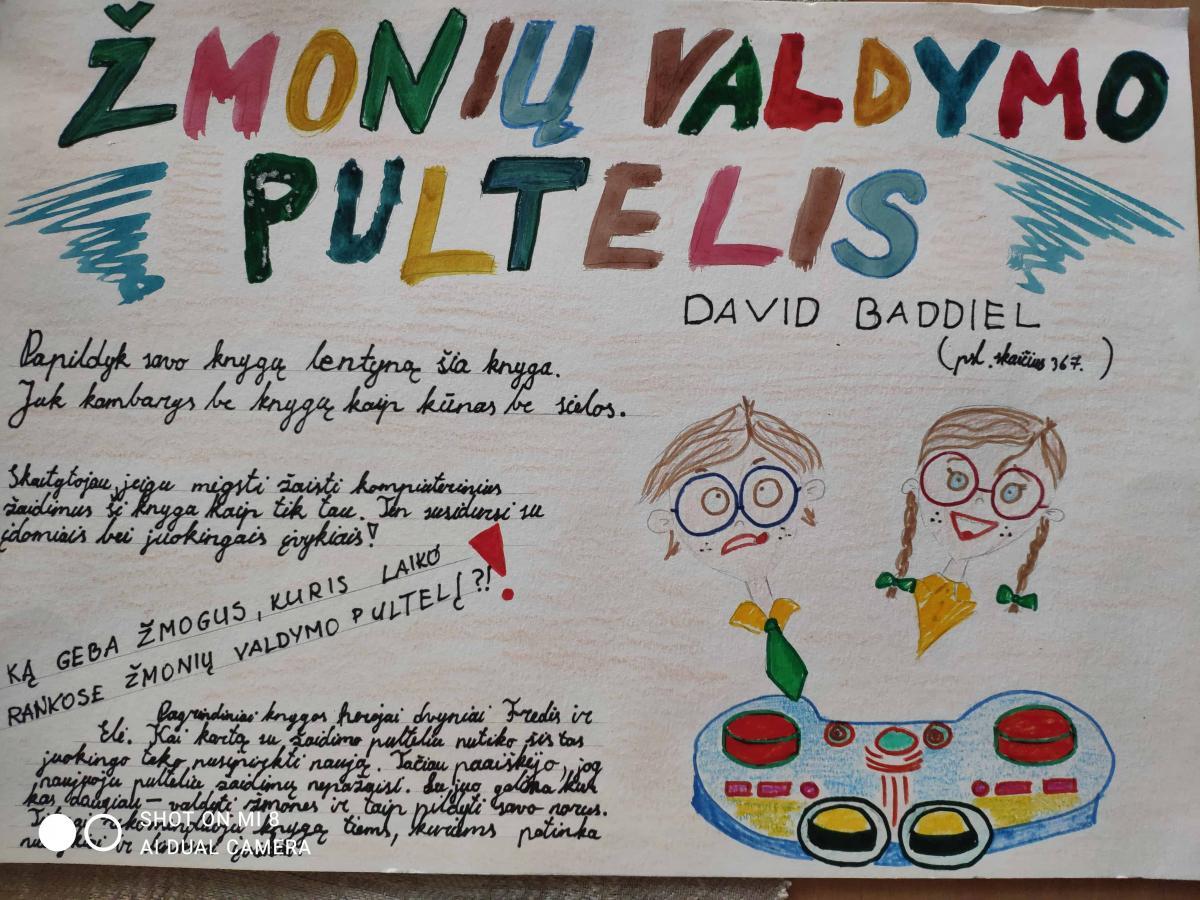 ŽMONIŲ VALDYMO
PULTELIS
DAVID BADDIEL
(psl. skaičius 367.)
Papildyk savo knygų lentyną šia knyga.
Juk kambarys be knygų kaip kūnas be sielos.
Skaitytojau, jeigu mėgsti žaisti kompiuterinius
žaidimus ši knyga kaip tik tau. Ten susidursi su
įdomiais bei juokingais įvykiais!
KĄ GEBA ŽMOGUS, KURIS LAIKO
RANKOSE ŽMONIŲ VALDYMO PULTELĮ?!
!
Pagrindiniai knygos herojai dvyniai Fredis ir
Elė. Kai kartą su žaidimo pulteliu nutiko šis tas
juokingo teko nusipirkti naują. Tačiau paaiškėjo, jog
naujuoju pulteliu žaidimų nepažaisi. Su juo galima kur
kas daugiau – valdyti žmones ir taip pildyti savo norus.
knygą tiems, kuriems patinka
ir
SHOT ON MI 8
AI DUAL CAMERA